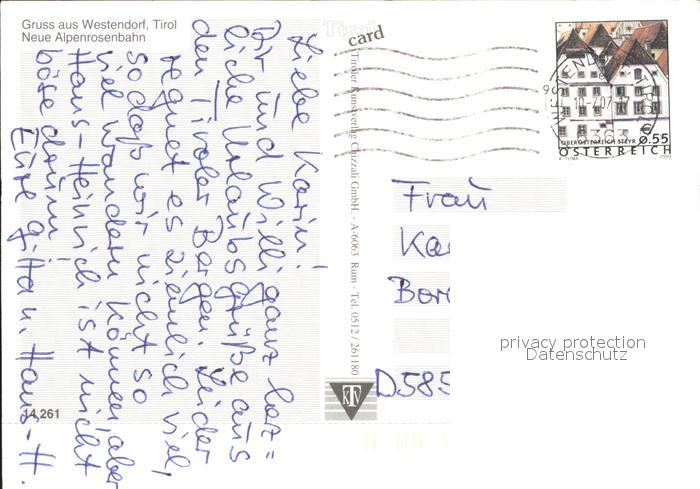 Gruss aus Westendorf, Tirol
Neue Alpenrosenbahn
Liebe Karin!
Dir und Willi ganz herz=
liche Urlaubsgrüße aus
den Tiroler Bergen. Leider
regnet es ziemlich viel,
sodaß wir nicht so
viel wandern können, aber
Hans-Heinrich ist nicht
böse darum!
Eure Gitta u. Hans-H.
14,261
Tirol
card
Tiroler Kunstverlag Chizzali GmbH. - A-6063 Rum - Tel. 0512 / 261180
KTV
OBERÖSTERREICH STEYR
€ 0.55
ÖSTERREICH
A. TUMA
2003
WESTENDORF
10-7.07
6363
Frau
Ka
D585
privacy protection
Datenschutz